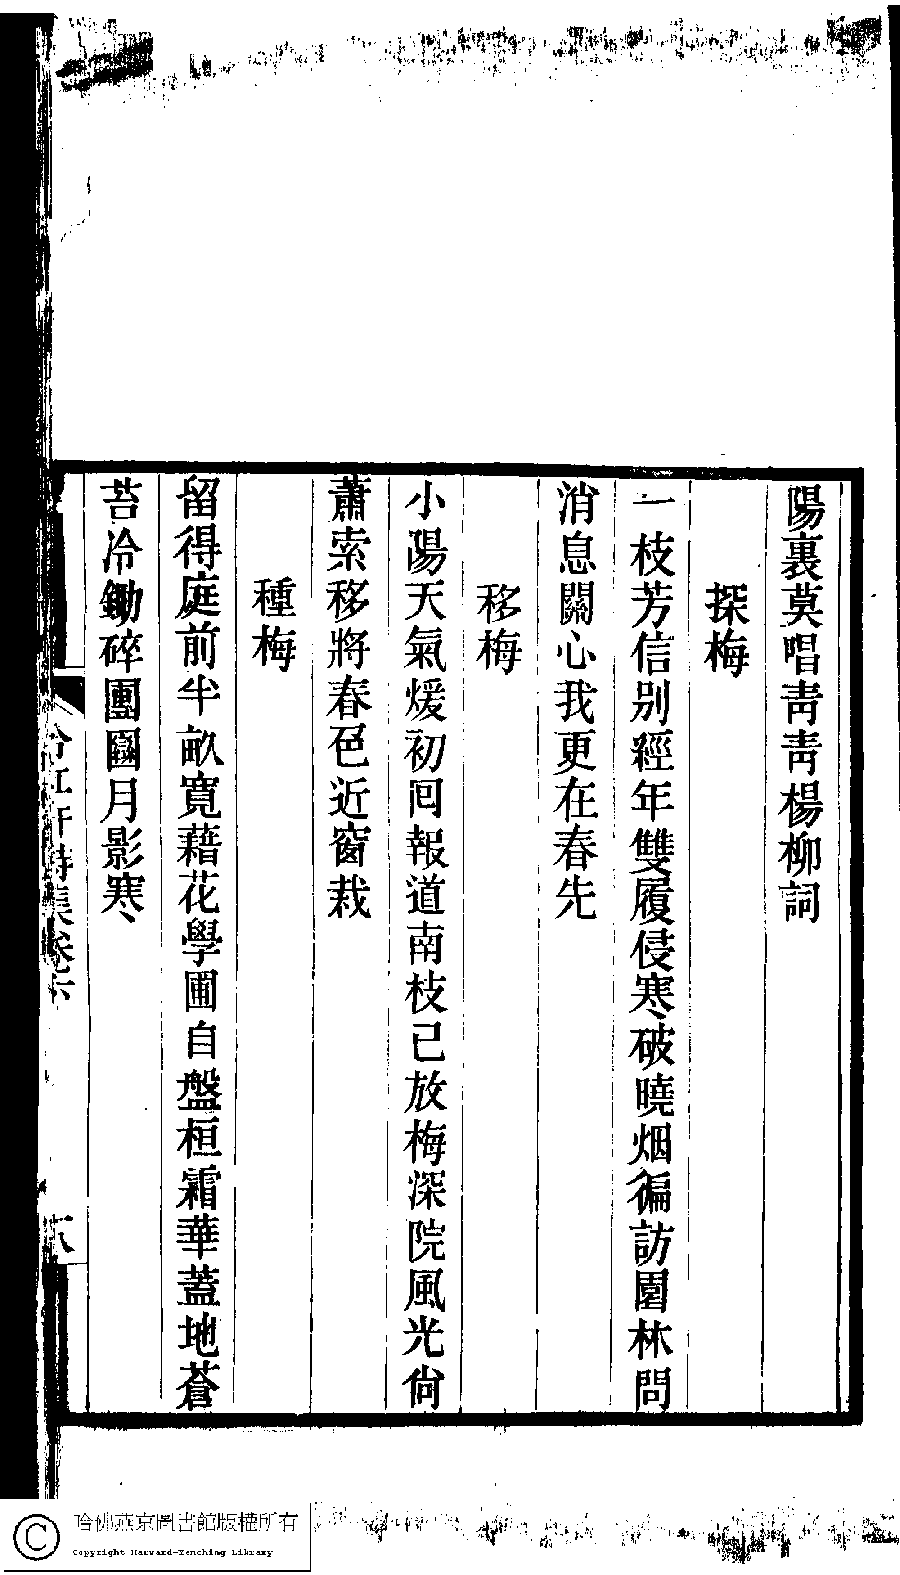 陽裏莫唱靑靑楊柳詞
探梅
一枝芳信别經年雙履侵寒破曉烟徧訪園林問
消息關心我更在春先
移梅
小陽天氣煖初囘報道南枝已放梅深院風光尙
蕭索移將春色近窗栽
種梅
留得庭前半畝寬藉花學圃自盤桓霜華蓋地蒼
苔冷鋤碎團圞月影寒
詩集卷六
哈佛燕京圖書館版權所有
Copyright Harvard-Yenching Library